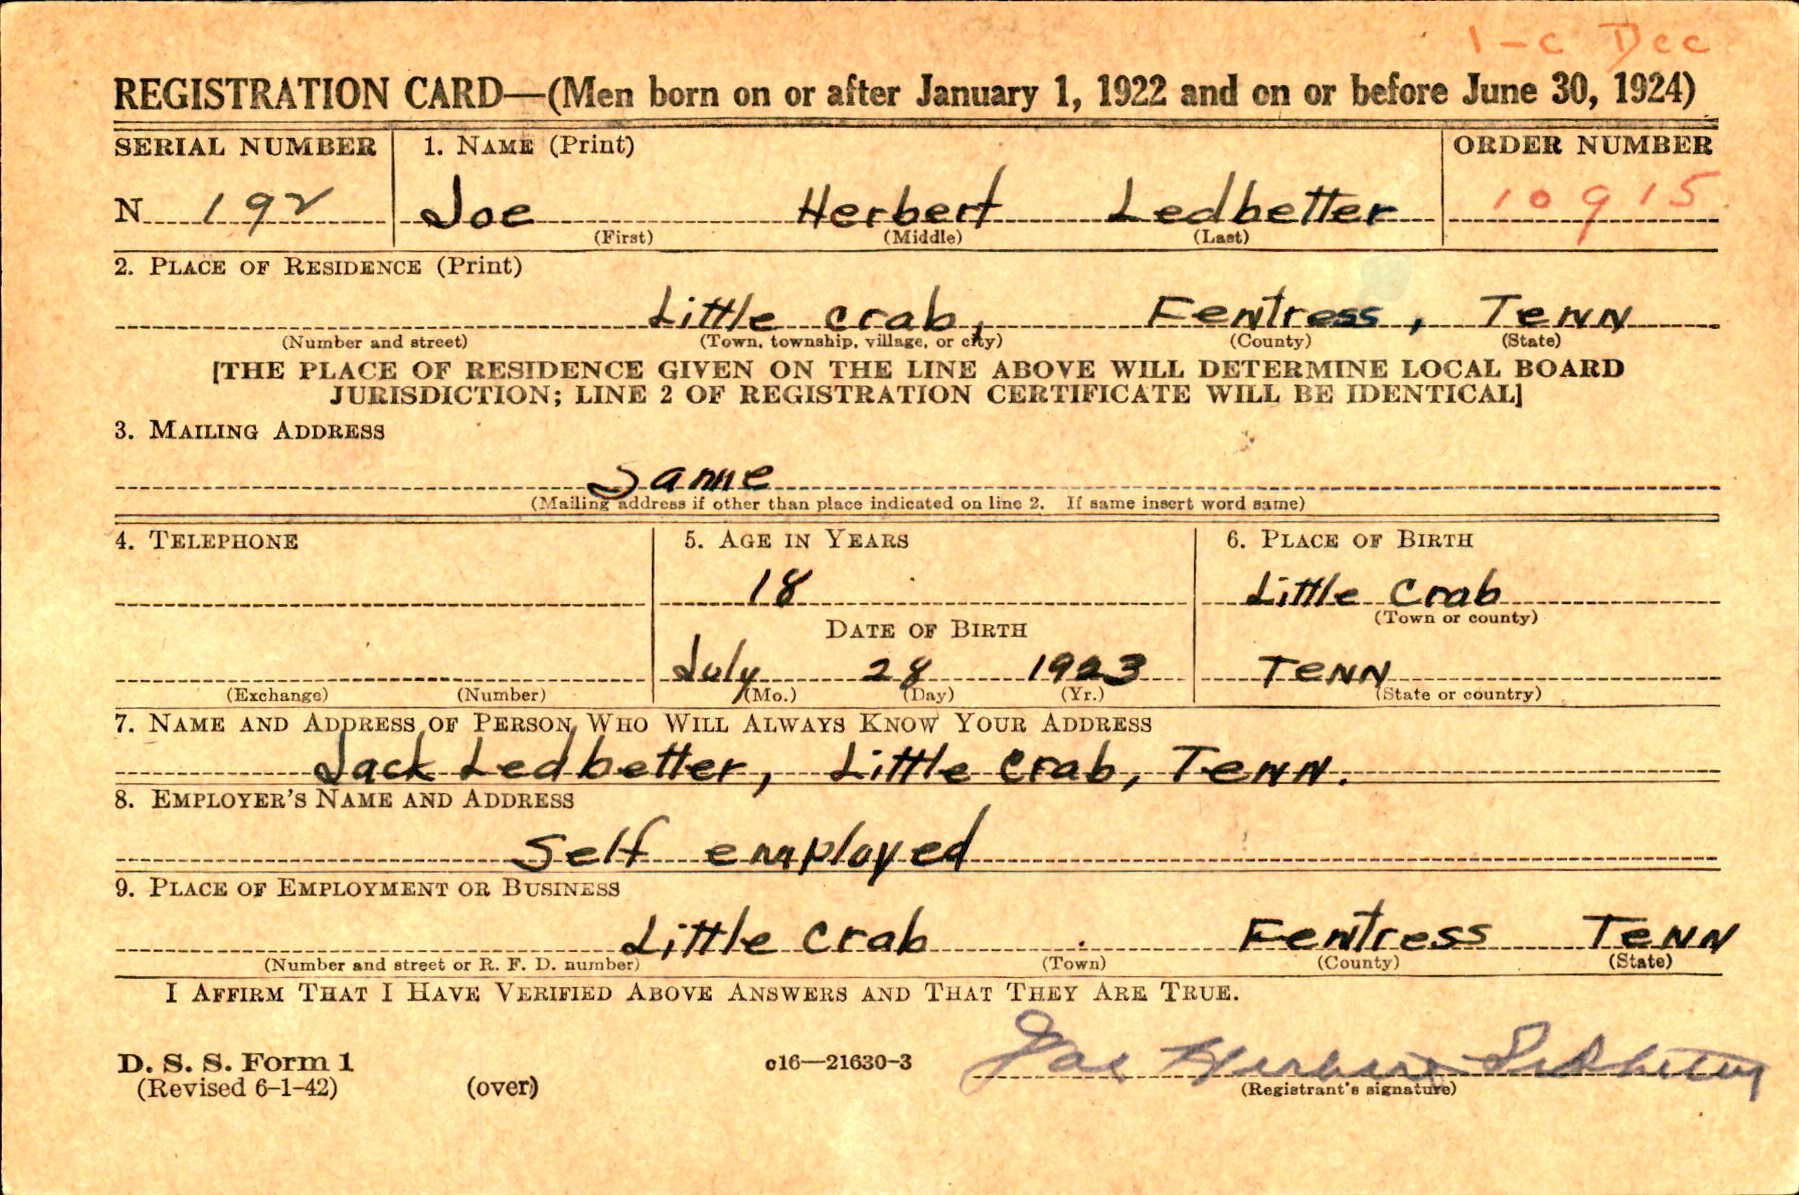 1-C Dec
REGISTRATION CARD—(Men born on or after January 1, 1922 and on or before June 30, 1924)
SERIAL NUMBER 1. NAME (Print) ORDER NUMBER
N 192 Joe Herbert Ledbetter 10915
(First) (Middle) (Last)
2. PLACE OF RESIDENCE (Print)
Little Crab, Fentress, Tenn
(Number and street) (Town, township, village, or city) (County) (State)
[THE PLACE OF RESIDENCE GIVEN ON THE LINE ABOVE WILL DETERMINE LOCAL BOARD
JURISDICTION; LINE 2 OF REGISTRATION CERTIFICATE WILL BE IDENTICAL]
3. MAILING ADDRESS
Same
(Mailing address if other than place indicated on line 2. If same insert word same)
4. TELEPHONE 5. AGE IN YEARS 6. PLACE OF BIRTH
18 Little Crab
(Town or county)
DATE OF BIRTH
July 28 1923 Tenn
(Exchange) (Number) (Mo.) (Day) (Yr.) (State or country)
7. NAME AND ADDRESS OF PERSON WHO WILL ALWAYS KNOW YOUR ADDRESS
Jack Ledbetter, Little Crab, Tenn.
8. EMPLOYER'S NAME AND ADDRESS
Self employed
9. PLACE OF EMPLOYMENT OR BUSINESS
Little Crab Fentress Tenn
(Number and street or R. F. D. number) (Town) (County) (State)
I AFFIRM THAT I HAVE VERIFIED ABOVE ANSWERS AND THAT THEY ARE TRUE.
D. S. S. Form 1 c16—21630-3 Joe Herbert Ledbetter
(Revised 6-1-42) (over) (Registrant's signature)